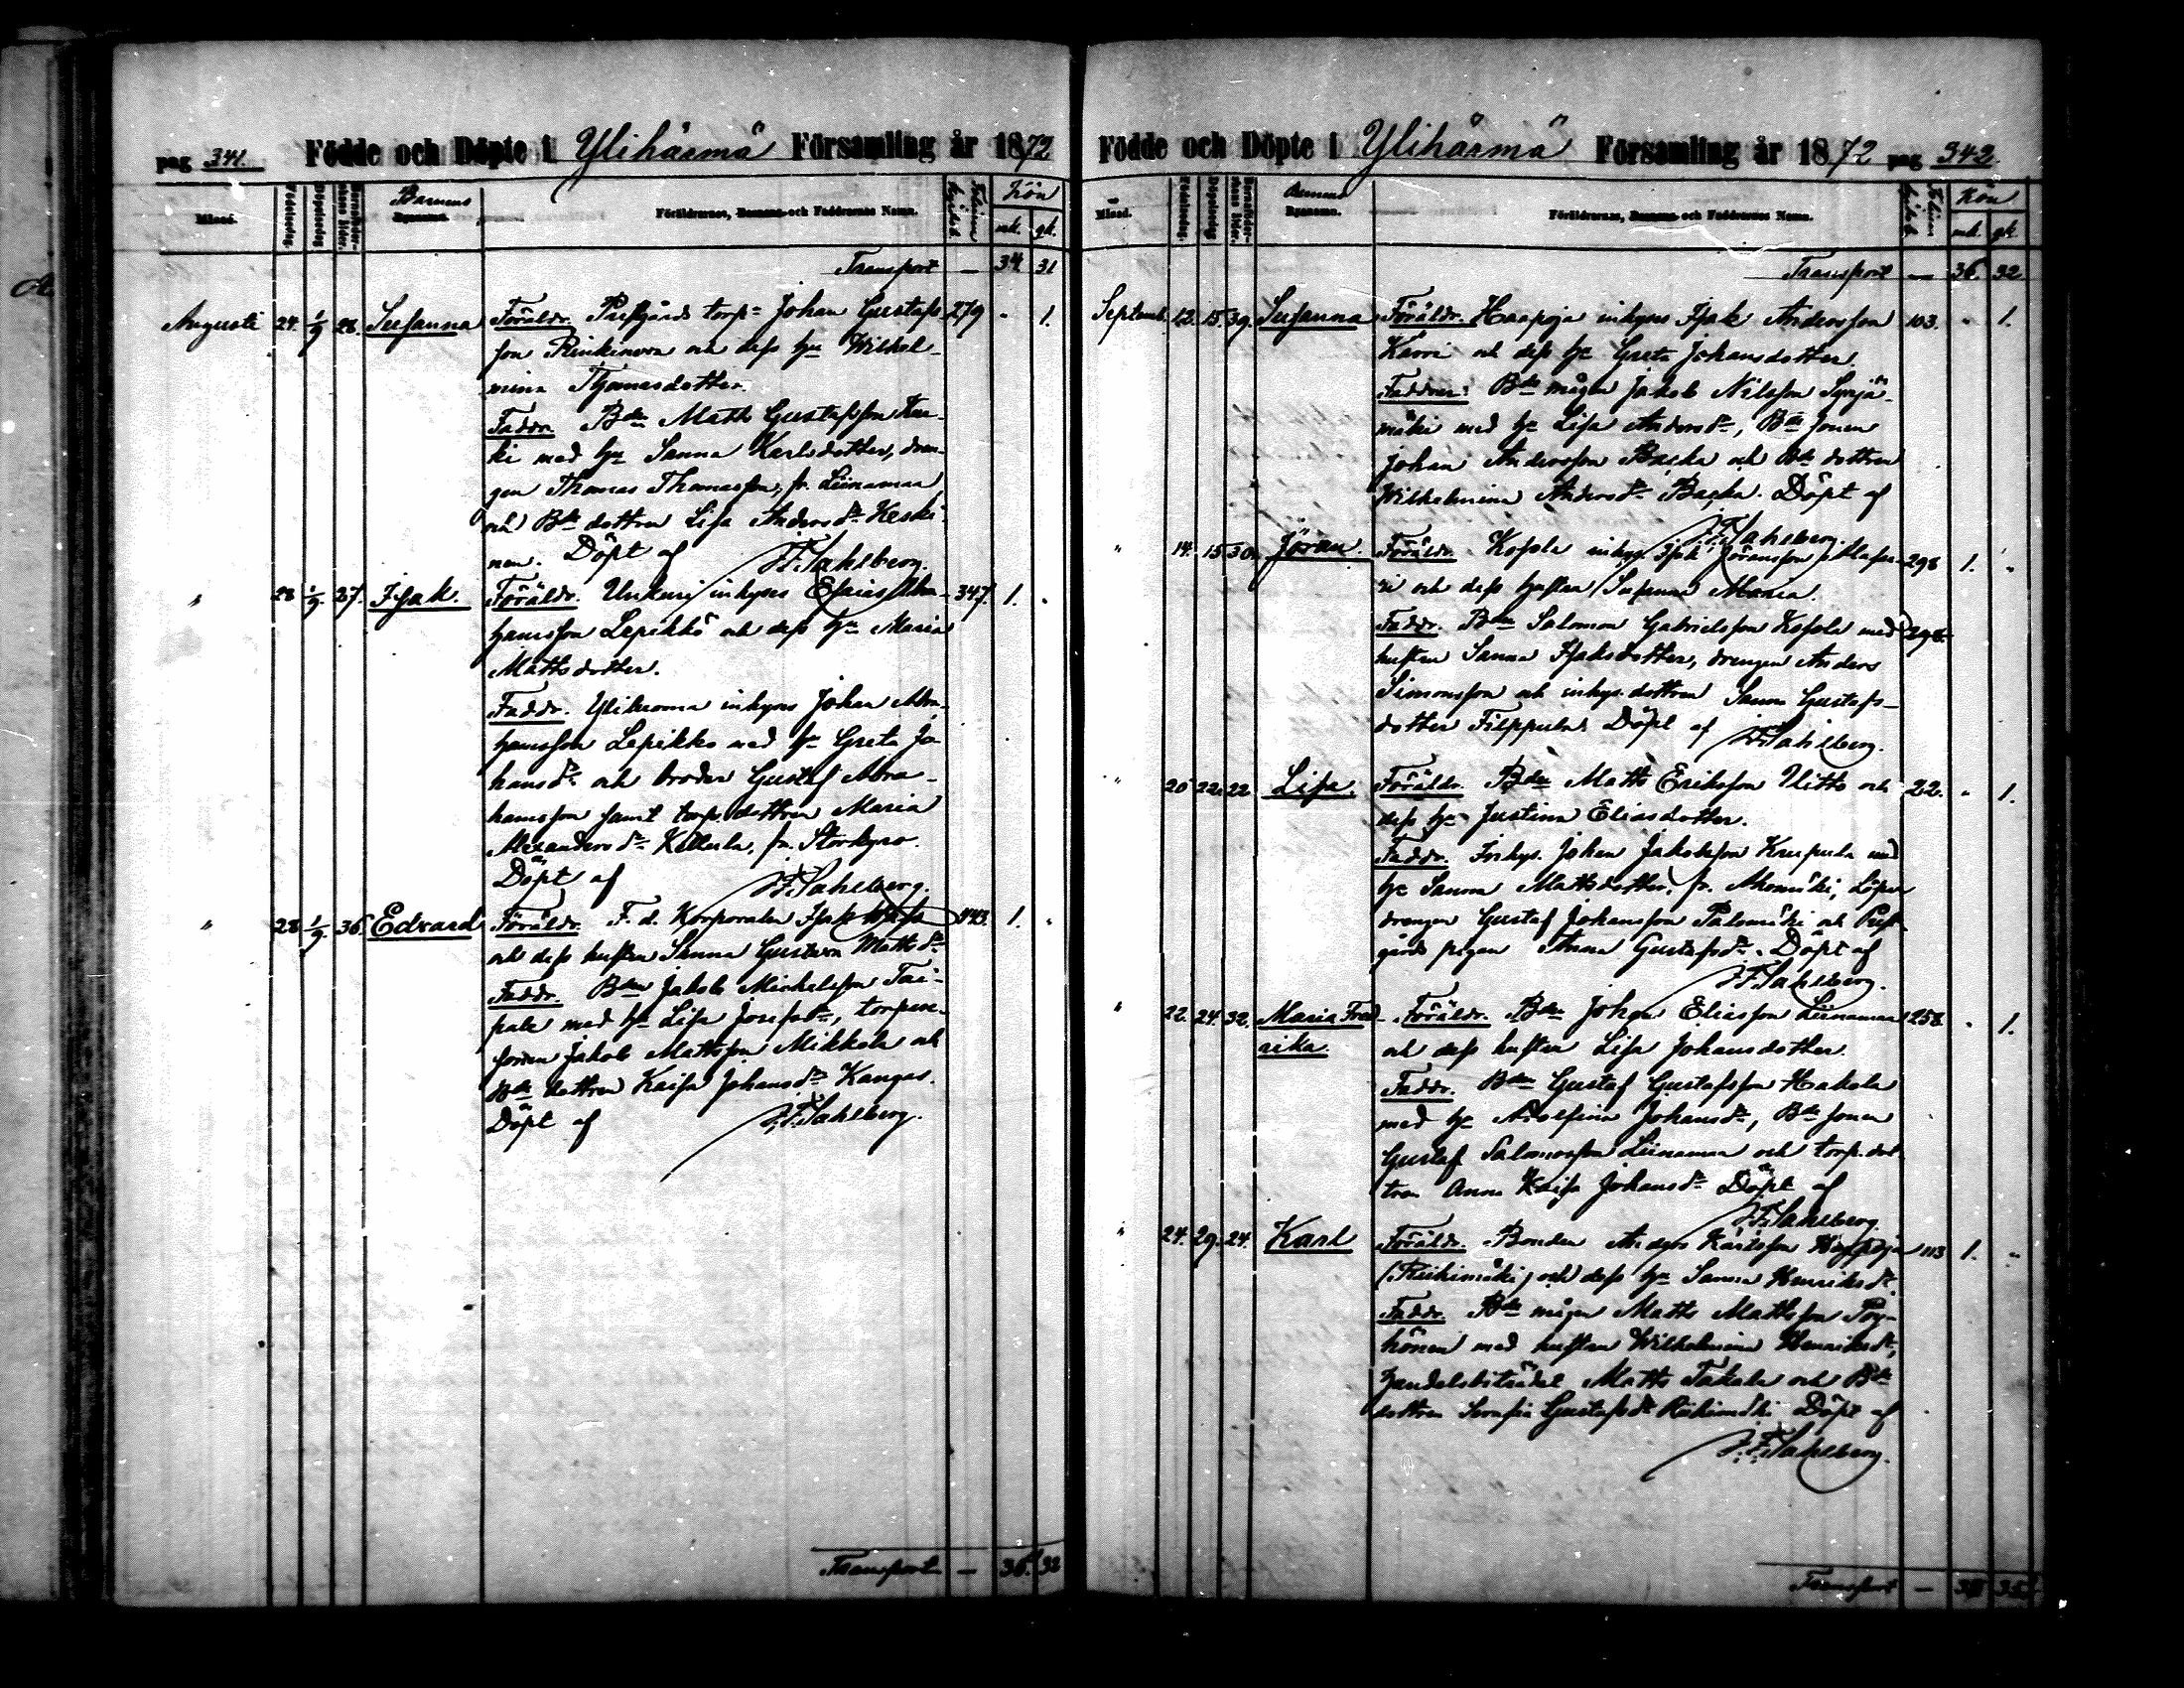 pag 341. Födde och Döpte i Ylihärmä Församling år 1872
Månad. Födelsedag. Döpelsedag Barnaföderskans ålder. Barnens Bynamn. Föräldrarnes, Barnens och Faddrarnes Namn. Kön
mk. qk.
Transport — 34 31
Augusti 24. 1/9 28. Susanna Föräldr. Prestgårds torp. Johan Gustafs- 279 " 1.
son Rinkinen och dess hu Wilhel-
mina Thomasdotter.
Faddr. Bdn Matts Gustafsson
ki med hu Sanna Karlsdotter, dren-
gen Thomas Thomasson, fr. Liinamaa
och Bde dottren Lisa Andersdr Keski-
nen. Döpt af J.F. Sahlberg.
" 28 1/9. 27. Isak. Föräldr. Unkuri inhyses Esaias Abra- 347. 1. "
hamsson Lepikkö och dess hu Maria
Mattsdotter.
Faddr. inhyses Johan Abra-
hamsson Lepikko med hu Greta Jo-
hansdr och broder Gustaf Abra-
hamsson samt torp. dottren Maria
Alexandersdr fr. Storkyro.
Döpt af J.F. Sahlberg.
" 28 1/9. 36. Edvard Föräldr. F. d. Korporalen Isak 443. 1. "
och dess hustru Sanna Gustava Mattsdr
Faddr. Bdn Jakob Michelsson Tai-
pale med hu Lisa Josefsdr, torpare-
sonen Jakob Mattsson Mikkola och
Bde dottren Kaisa Johansdr Kangas.
Döpt af J.F. Sahlberg.
Transport — 36. 32
Födde och Döpte i Ylihärmä Församling år 1872 pag 342.
Månad. Födelsedag. Döpelsedag Barnaföderskans ålder. Barnens Bynamn. Föräldrarnes, Barnens och Faddrarnes Namn. Kön
mk. qk.
Transport — 36. 32
Septemb. 12. 15. 39. Susanna Föräldr. Haapoja inhyses Isak Andersson 103. " 1.
Karri och dess hu Greta Johansdotter.
Faddrar: Bde mågen Jakob Nilsson Syrjä-
mäki med hu Lisa Andersdr, Bde sonen
Johan Andersson Backa och Bde dottren
Wilhelmina Andersdr Backa. Döpt af
J.F. Sahlberg.
" 14. 15. 30. Jöran. Föräldr. Kosola inhys. Isak Jöransson 298 1. "
ri och dess hustru Susanna Maria.
Faddr. Bdn Salomon Gabrielsson Kosola med 298
hustru Sanna Isaksdotter, drengen Anders
Simonsson och inhys. dottren Sanna Gustafs-
dotter Filppula. Döpt af J.F. Sahlberg.
" 20 22. 22 Lisa. Föräldr. Bdn Matts Eriksson Ulitto och 22. " 1.
dess hu Justina Eliasdotter.
Faddr. Inhys. Johan Jakobsson med
hu Sanna Mattsdotter, fr. Löper
drengen Gustaf Johansson Palomäki och Prest-
gårds pigan Anna Gustafsdr. Döpt af
J.F. Sahlberg.
" 22. 24. 32. Maria Fred- Föräldr. Bdn Johan Eliasson Liinamaa 258. " 1.
rika. och dess hustru Lisa Johansdotter.
Faddr. Bdn Gustaf Gustafsson Hakola
med hu Adolfina Johansdr, Bde sonen
Gustaf Salomonsson Liinamaa och torp. dot-
tren Anna Kaisa Johansdr Döpt af
J.F. Sahlberg.
" 24. 29. 24. Karl Föräldr. Bonden Anders Karlsson Haapoja 113 1. "
(Riihimäki) och dess hu Sanna Henriksdr.
Faddr. Bde mågen Matts Mattsson Pöy-
hönen med hustru Wilhelmina Henriksdr,
handelsbiträdet Matts Takala och Bde
dottren Serafia Gustafsdr Riihimäki Döpt af
J.F. Sahlberg.
Transport — 38 35